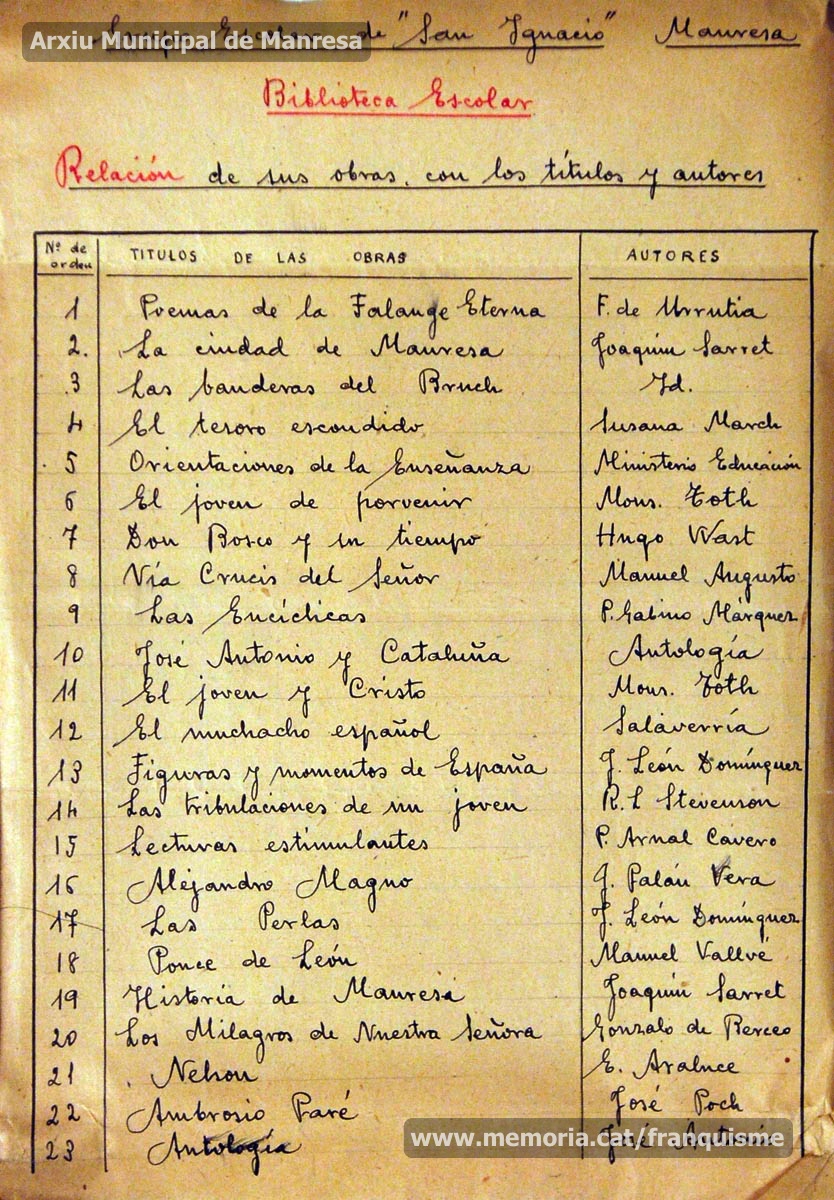 Arxiu Municipal de Manresa
Grupo Escolar de "San Ignacio" Manresa
Biblioteca Escolar
Relación de sus obras, con los títulos y autores
Nº de orden TITULOS DE LAS OBRAS AUTORES
1 Poemas de la Falange Eterna F. de Urrutia
2. La ciudad de Manresa Joaquín Sarret
3 Las banderas del Bruch Id.
4 El tesoro escondido Susana March
5 Orientaciones de la Enseñanza Ministerio Educación
6 El joven de porvenir Mons. Toth
7 Don Bosco y su tiempo Hugo Wast
8 Vía Crucis del Señor Manuel Augusto
9 Las Encíclicas P. Gabino Márquez
10 José Antonio y Cataluña Antología
11 El joven y Cristo Mons. Toth
12 El muchacho español Salaverría
13 Figuras y momentos de España J. León Domínguez
14 Las tribulaciones de un joven R. L Stevenson
15 Lecturas estimulantes P. Arnal Cavero
16 Alejandro Magno J. Paláu Vera
17 Las Perlas J. León Domínguez
18 Ponce de León Manuel Vallvé
19 Historia de Manresa Joaquín Sarret
20 Los Milagros de Nuestra Señora Gonzalo de Berceo
21 Nelson E. Araluce
22 Ambrosio Paré José Poch
23 Antología José Antonio
www.memoria.cat/franquisme